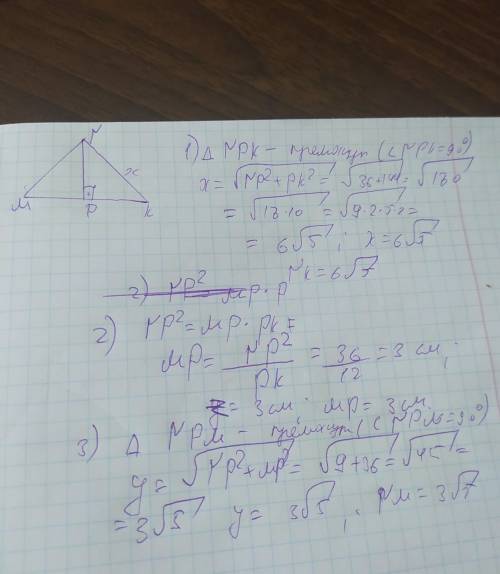 N
x
M
P
K
1) Δ NPK - прямокут (∠NPK=90°)
x = √NP²+PK² = √36+144 = √180
= √18·10 = √9·2·5·2 =
= 6√5; x=6√5
NK=6√5
2) NP² = MP·P
2) NP² = MP·PK =
MP = NP²/PK = 36/12 = 3 см;
= 3 см; MP = 3 см
3) Δ NPM - прямокут (∠NPM=90°)
y = √NP²+MP² = √9+36 = √45 =
= 3√5 y = 3√5; NM = 3√5